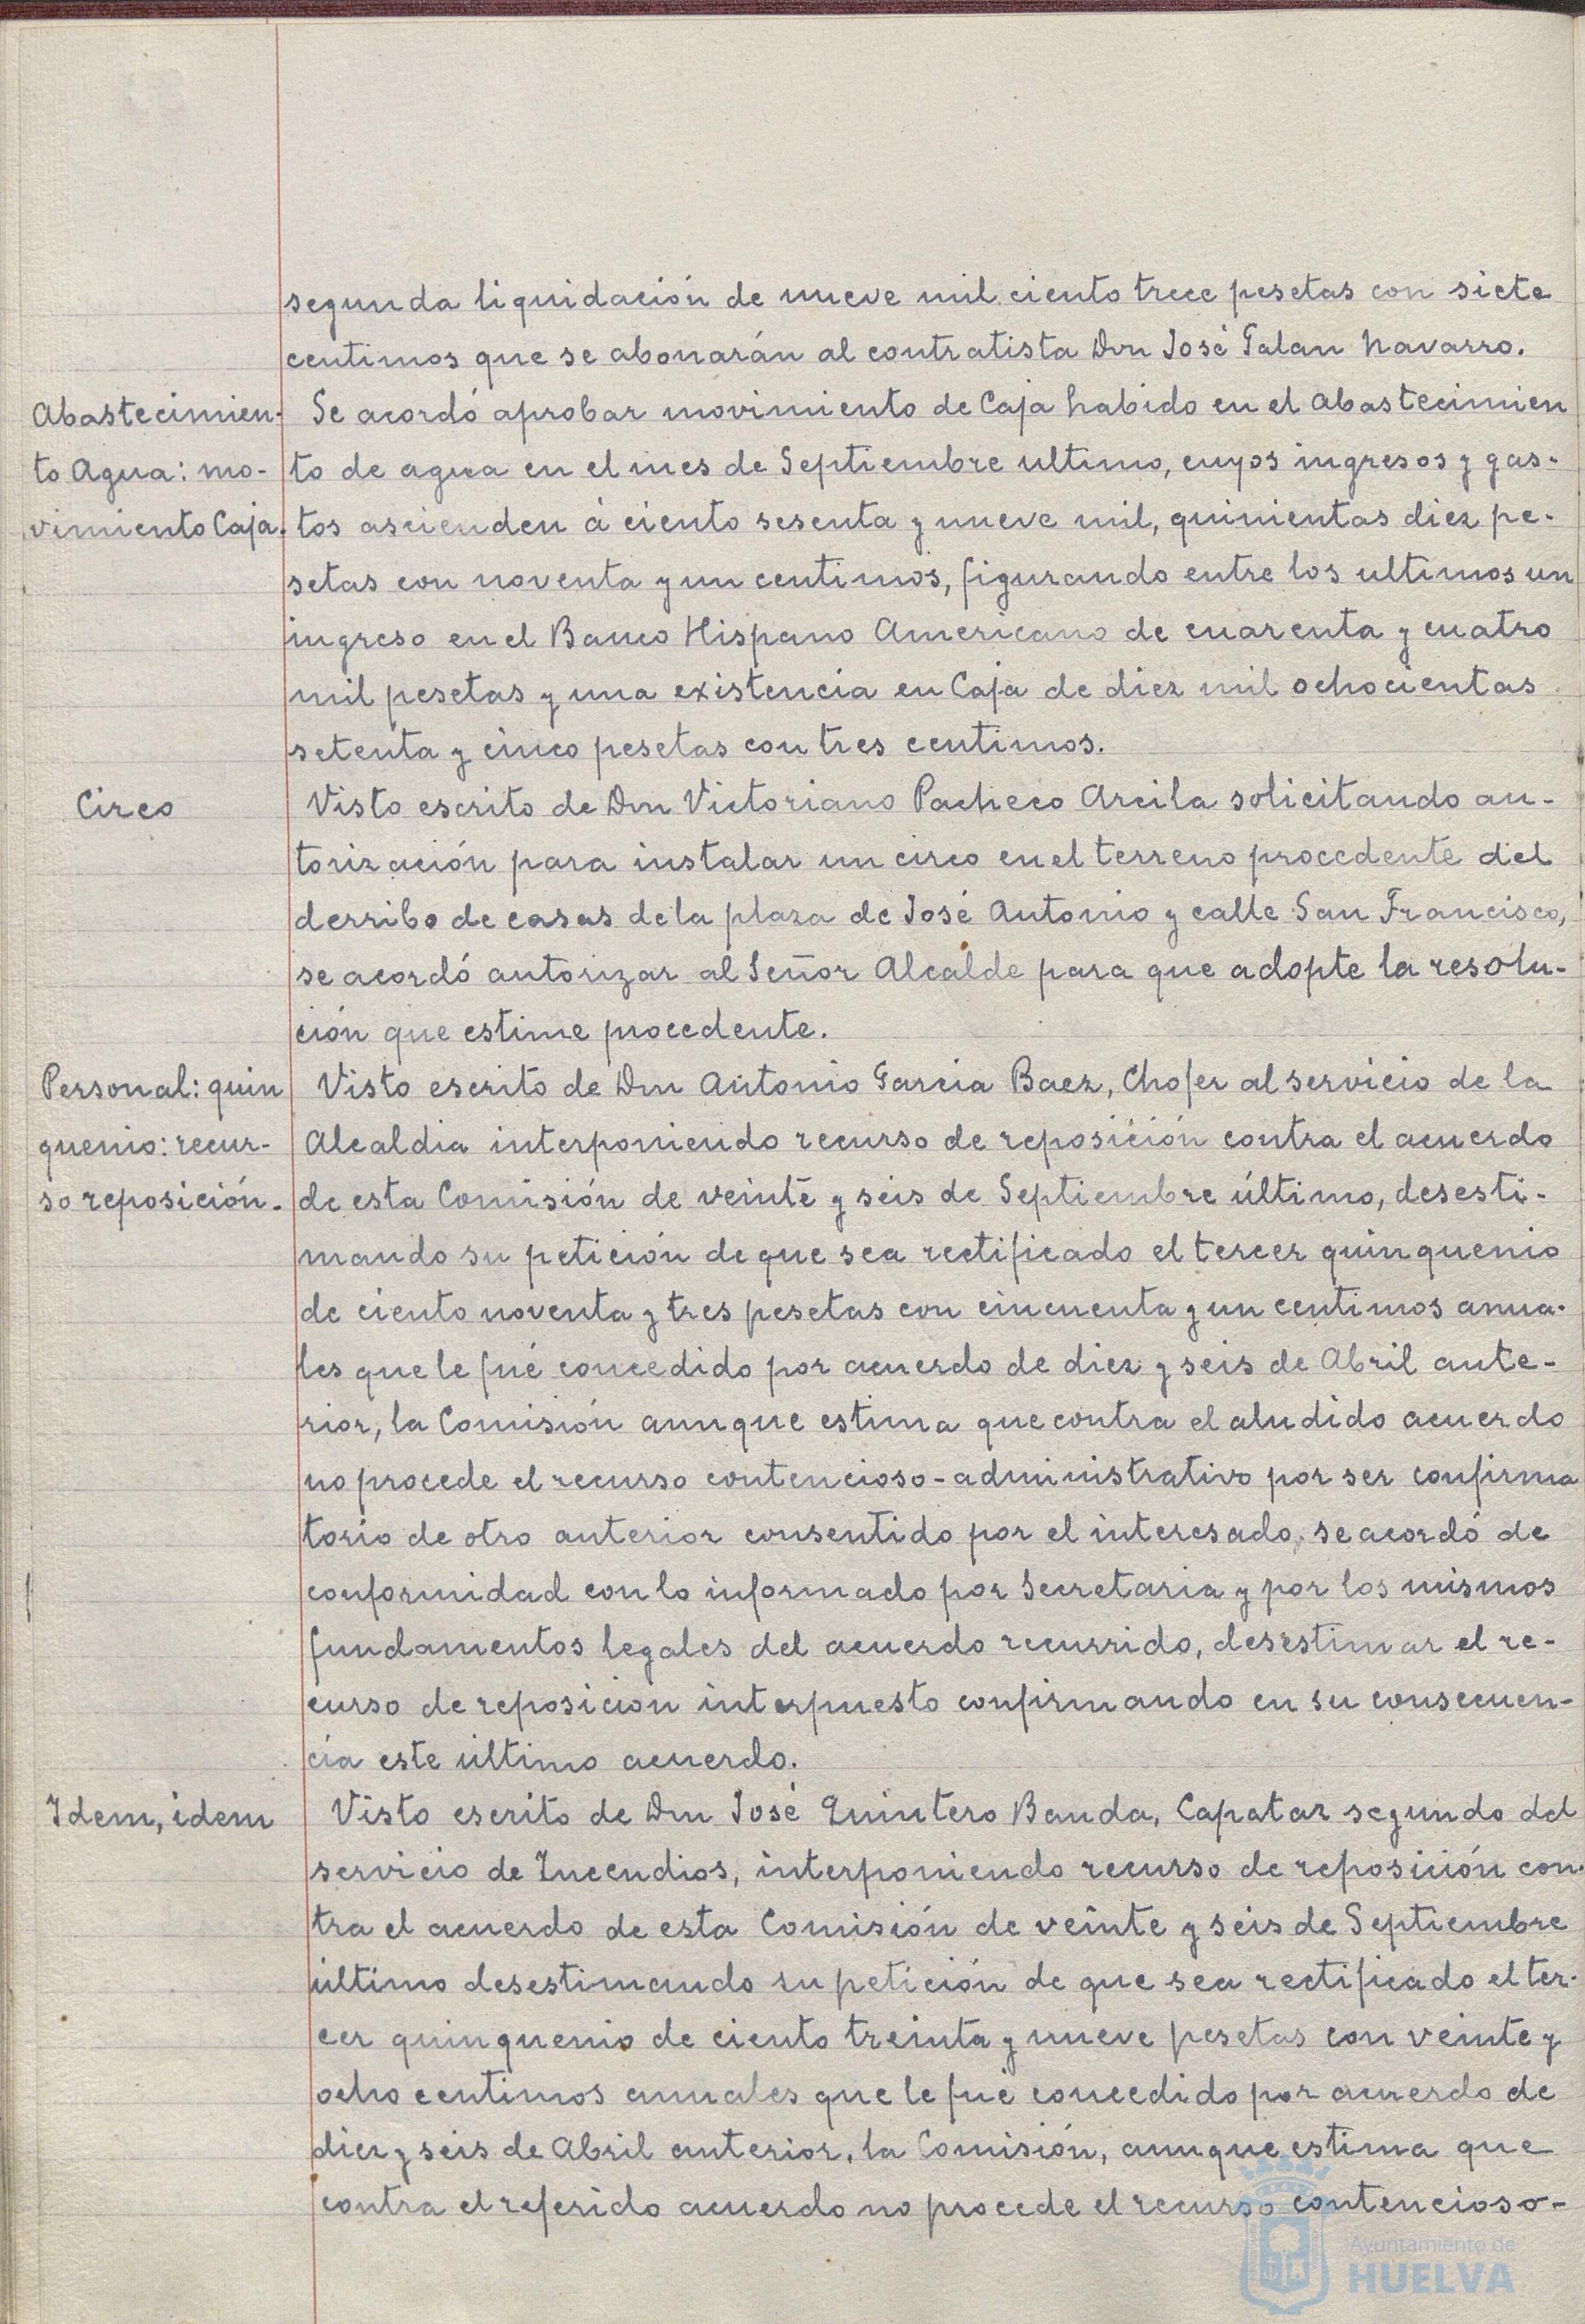 segunda liquidación de nueve mil ciento trece pesetas con siete
centimos que se abonarán al contratista Don José Galan Navarro.
Abastecimien-
to Agua: mo-
vimiento Caja.
Se acordó aprobar movimiento de Caja habido en el Abastecimien
to de agua en el mes de Septiembre ultimo, cuyos ingresos y gas-
tos ascienden á ciento sesenta y nueve mil, quinientas diez pe-
setas con noventa y un centimos, figurando entre los ultimos un
ingreso en el Banco Hispano Americano de cuarenta y cuatro
mil pesetas y una existencia en Caja de diez mil ochocientas
setenta y cinco pesetas con tres centimos.
Circo
Visto escrito de Don Victoriano Pacheco Arcila solicitando au-
torización para instalar un circo en el terreno procedente del
derribo de casas de la plaza de José Antonio y calle San Francisco,
se acordó autorizar al Señor Alcalde para que adopte la resolu-
ción que estime procedente.
Personal: quin
quenio: recur-
so reposición.
Visto escrito de Don Antonio Garcia Baez, Chofer al servicio de la
Alcaldia interponiendo recurso de reposición contra el acuerdo
de esta Comisión de veinte y seis de Septiembre último, desesti-
mando su petición de que sea rectificado el tercer quinquenio
de ciento noventa y tres pesetas con cincuenta y un centimos anua-
les que le fué concedido por acuerdo de diez y seis de Abril ante-
rior, la Comisión aunque estima que contra el aludido acuerdo
no procede el recurso contencioso-administrativo por ser confirma
torio de otro anterior consentido por el interesado, se acordó de
conformidad con lo informado por Secretaria y por los mismos
fundamentos legales del acuerdo recurrido, desestimar el re-
curso de reposicion interpuesto confirmando en su consecuen-
cia este último acuerdo.
Idem, idem
Visto escrito de Don José Quintero Banda, Capataz segundo del
servicio de Incendios, interponiendo recurso de reposición con-
tra el acuerdo de esta Comisión de veinte y seis de Septiembre
último desestimando su petición de que sea rectificado el ter-
cer quinquenio de ciento treinta y nueve pesetas con veinte y
ocho centimos anuales que le fué concedido por acuerdo de
diez y seis de Abril anterior, la Comisión, aunque estima que
contra el referido acuerdo no procede el recurso contencioso-
Ayuntamiento de
HUELVA